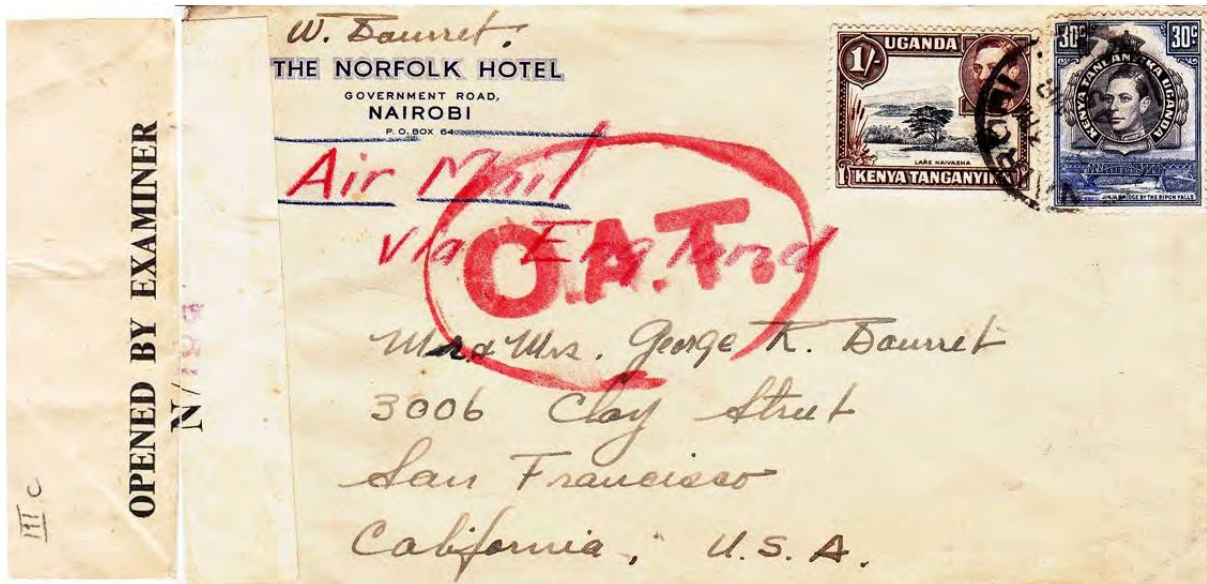 OPENED BY EXAMINER
N/
III c
W. Dourret.
THE NORFOLK HOTEL
GOVERNMENT ROAD,
NAIROBI
P.O. BOX 64
Air Mail
via England
O.A.T.
1/-
UGANDA
LAKE NAIVASHA
KENYA TANGANYIKA
30c 30c
KENYA TANGANYIKA UGANDA
JINJA BRIDGE BY THE RIPON FALLS
Mr & Mrs. George K. Dourret
3006 Clay Street
San Francisco
California, U.S.A.